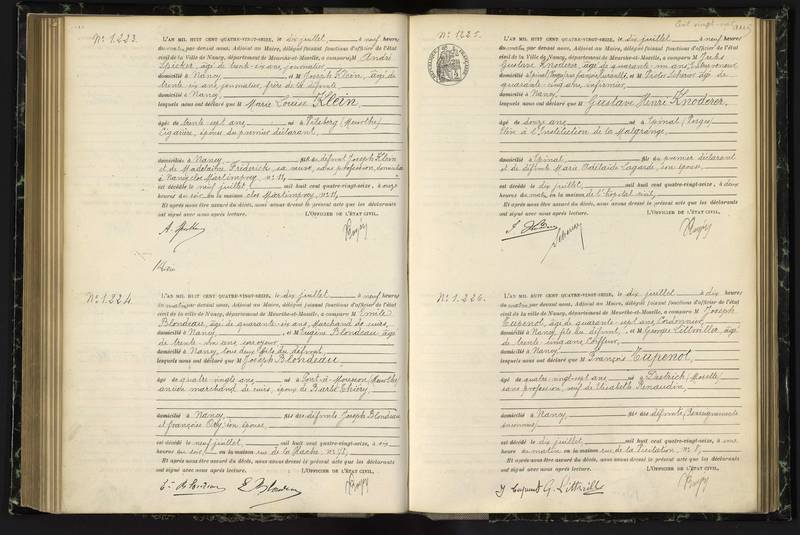 N° 1.223.
L'AN MIL HUIT CENT QUATRE-VINGT-SEIZE, le dix juillet à neuf heures
du matin, par devant nous, Adjoint au Maire, délégué faisant fonctions d'officier de l'état
civil de la Ville de Nancy, département de Meurthe-et-Moselle, a comparu M André
âgé de trente six ans, journalier
domicilié à Nancy et M Joseph Klein, âgé de
trente six ans, journalier, frère de la défunte
domicilié à Nancy
lesquels nous ont déclaré que Marie Louise Klein
âgée de trente sept ans née à (Meurthe)
Cigarière, épouse du premier déclarant
domicilié à Nancy fille de défunt Joseph Klein
et de Madeleine Frederick, sa veuve, sans profession, domiciliée
à Nancy, clos Martimprey, n° 11,
est décédée le neuf juillet mil huit cent quatre-vingt-seize, à onze
heures du soir, en la maison clos Martimprey, n° 11,
Et après nous être assuré du décès, nous avons dressé le présent acte que les déclarants
ont signé avec nous après lecture. L'OFFICIER DE L'ÉTAT CIVIL,
Klein
N° 1.224.
L'AN MIL HUIT CENT QUATRE-VINGT-SEIZE, le dix juillet à neuf heures
du matin, par devant nous, Adjoint au Maire, délégué faisant fonctions d'officier de l'état
civil de la Ville de Nancy, département de Meurthe-et-Moselle, a comparu M Emile
Blondeau, âgé de quarante six ans, Marchand de cuirs,
domicilié à Nancy et M Eugène Blondeau, âgé
de trente
domicilié à Nancy, tous deux fils du défunt
lesquels nous ont déclaré que M Joseph Blondeau
âgé de quatre vingts ans né à Pont-à-Mousson (Meurthe)
ancien marchand de cuirs, époux de Barbe Thiéry,
domicilié à Nancy fils des défunts Joseph Blondeau
et Françoise son épouse,
est décédé le neuf juillet mil huit cent quatre-vingt-seize, à six
heures du soir, en la maison rue de la Hache, n° 71,
Et après nous être assuré du décès, nous avons dressé le présent acte que les déclarants
ont signé avec nous après lecture. L'OFFICIER DE L'ÉTAT CIVIL,
E. Blondeau
N° 1225.
L'AN MIL HUIT CENT QUATRE-VINGT-SEIZE, le dix juillet à neuf heures
du matin, par devant nous, Adjoint au Maire, délégué faisant fonctions d'officier de l'état
civil de la Ville de Nancy, département de Meurthe-et-Moselle, a comparu M Jules
Gustave Knoderer, âgé de quarante
domicilié à Epinal (Vosges) et M Pierre âgé de
quarante cinq ans, infirmier
domicilié à Nancy
lesquels nous ont déclaré que Gustave Henri Knoderer,
âgé de douze ans né à Epinal (Vosges)
Elève à l'Institution de la Malgrange,
domicilié à Epinal fils du premier déclarant
et de défunte Marie Adélaïde Lagarde, son épouse,
est décédé le dix juillet mil huit cent quatre-vingt-seize, à deux
heures du matin, en la maison de l'hospital civil,
Et après nous être assuré du décès, nous avons dressé le présent acte que les déclarants
ont signé avec nous après lecture. L'OFFICIER DE L'ÉTAT CIVIL,
N° 1.226.
L'AN MIL HUIT CENT QUATRE-VINGT-SEIZE, le dix juillet à dix heures
du matin, par devant nous, Adjoint au Maire, délégué faisant fonctions d'officier de l'état
civil de la Ville de Nancy, département de Meurthe-et-Moselle, a comparu M Joseph
Cupenot, âgé de quarante sept ans, Cordonnier,
domicilié à Nancy, fils du défunt, et M Georges âgé
de trente cinq ans, Coiffeur,
domicilié à Nancy
lesquels nous ont déclaré que M François Cupenot,
âgé de quatre-vingt-sept ans né à (Moselle)
sans profession, veuf de Elisabeth Renaudin,
domicilié à Nancy fils des défunts (Renseignements
inconnus)
est décédé le dix juillet mil huit cent quatre-vingt-seize, à une
heure du matin, en la maison rue de la Visitation, n° 8,
Et après nous être assuré du décès, nous avons dressé le présent acte que les déclarants
ont signé avec nous après lecture. L'OFFICIER DE L'ÉTAT CIVIL,